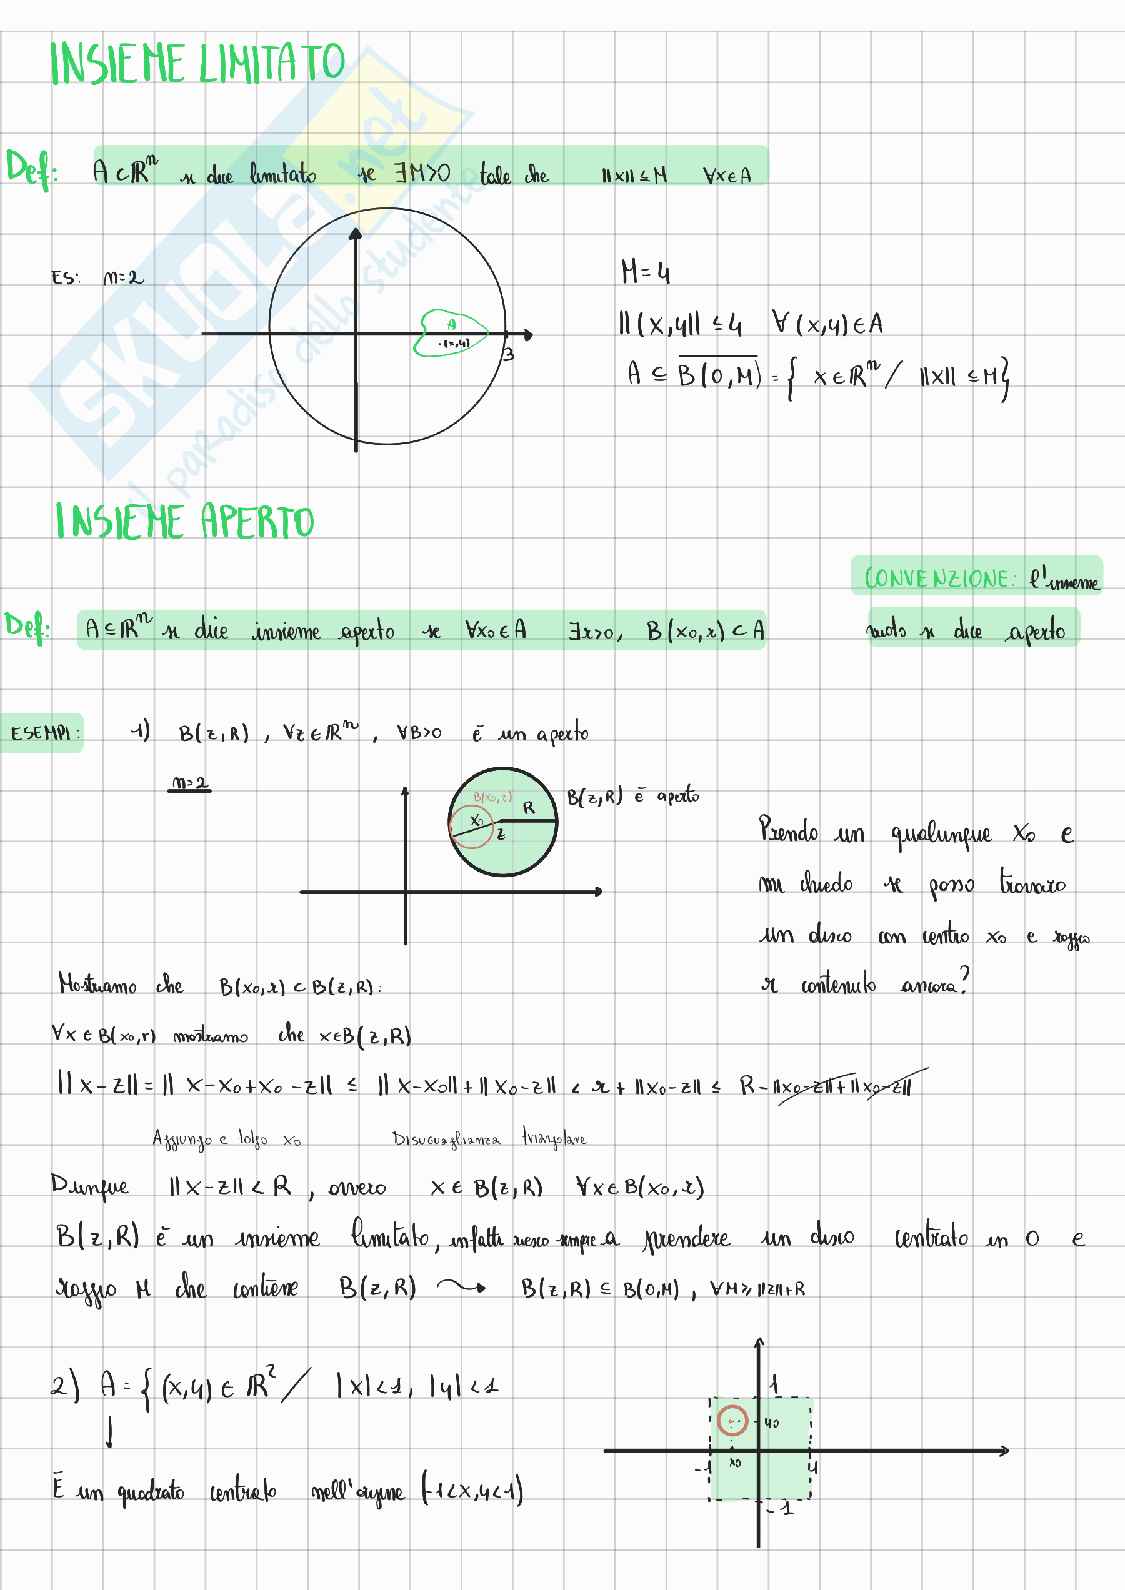 INSIEME LIMITATO
Def: A⊂ℝⁿ si dice limitato se ∃M>0 tale che ||x|| ≤ M ∀x∈A
SKUOLA.net
il paradiso dello studente
ES: n=2
A
·(x,y)
3
M=4
||(x,y|| ≤ 4 ∀(x,y)∈A
A ⊆ \overline{B(0,M)} = { x∈ℝⁿ / ||x|| ≤ M}
INSIEME APERTO
CONVENZIONE: l'insieme
Def: A⊆ℝⁿ si dice insieme aperto se ∀x₀∈A ∃r>0, B(x₀,r)⊂A
vuoto si dice aperto
ESEMPI: 1) B(z,R), ∀z∈ℝⁿ, ∀B>0 è un aperto
n=2
B(x₀,r)
x₀
R
z
B(z,R) è aperto
Prendo un qualunque x₀ e
mi chiedo se posso trovare
un disco con centro x₀ e raggio
r contenuto ancora?
Mostriamo che B(x₀,r) ⊂ B(z,R):
∀x∈B(x₀,r) mostriamo che x∈B(z,R)
||x-z|| = || x-x₀+x₀-z|| ≤ ||x-x₀||+||x₀-z|| < r+||x₀-z|| ≤ R-||x₀-z||+||x₀-z||
Aggiungo e tolgo x₀ Disuguaglianza triangolare
Dunque ||x-z|| < R, ovvero x∈B(z,R) ∀x∈B(x₀,r)
B(z,R) è un insieme limitato, infatti riesco sempre a prendere un disco centrato in 0 e
raggio M che contiene B(z,R) ⤳ B(z,R) ⊆ B(0,M), ∀M≥||z||+R
2) A={(x,y)∈ℝ² / |x|<1, |y|<1
↓
È un quadrato centrato nell'origine (-1<x,y<1)
1
y₀
-1
x₀
1
-1